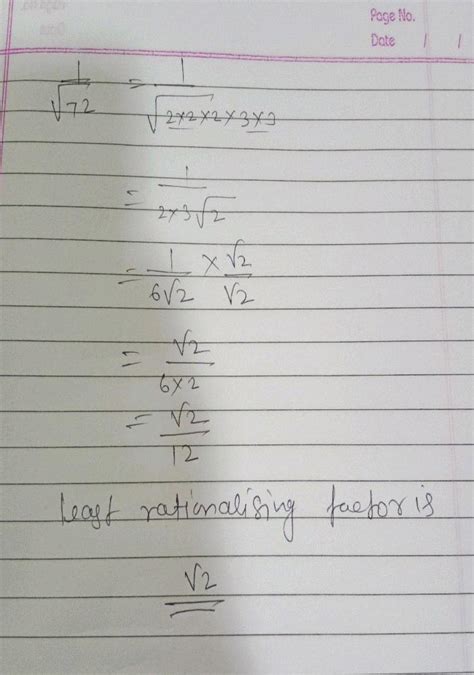 Page No.
Date / /
1/√72 = 1/√(2×2×2×3×3)
= 1/(2×3√2)
= 1/(6√2) × √2/√2
= √2/(6×2)
= √2/12
Least rationalising factor is
√2